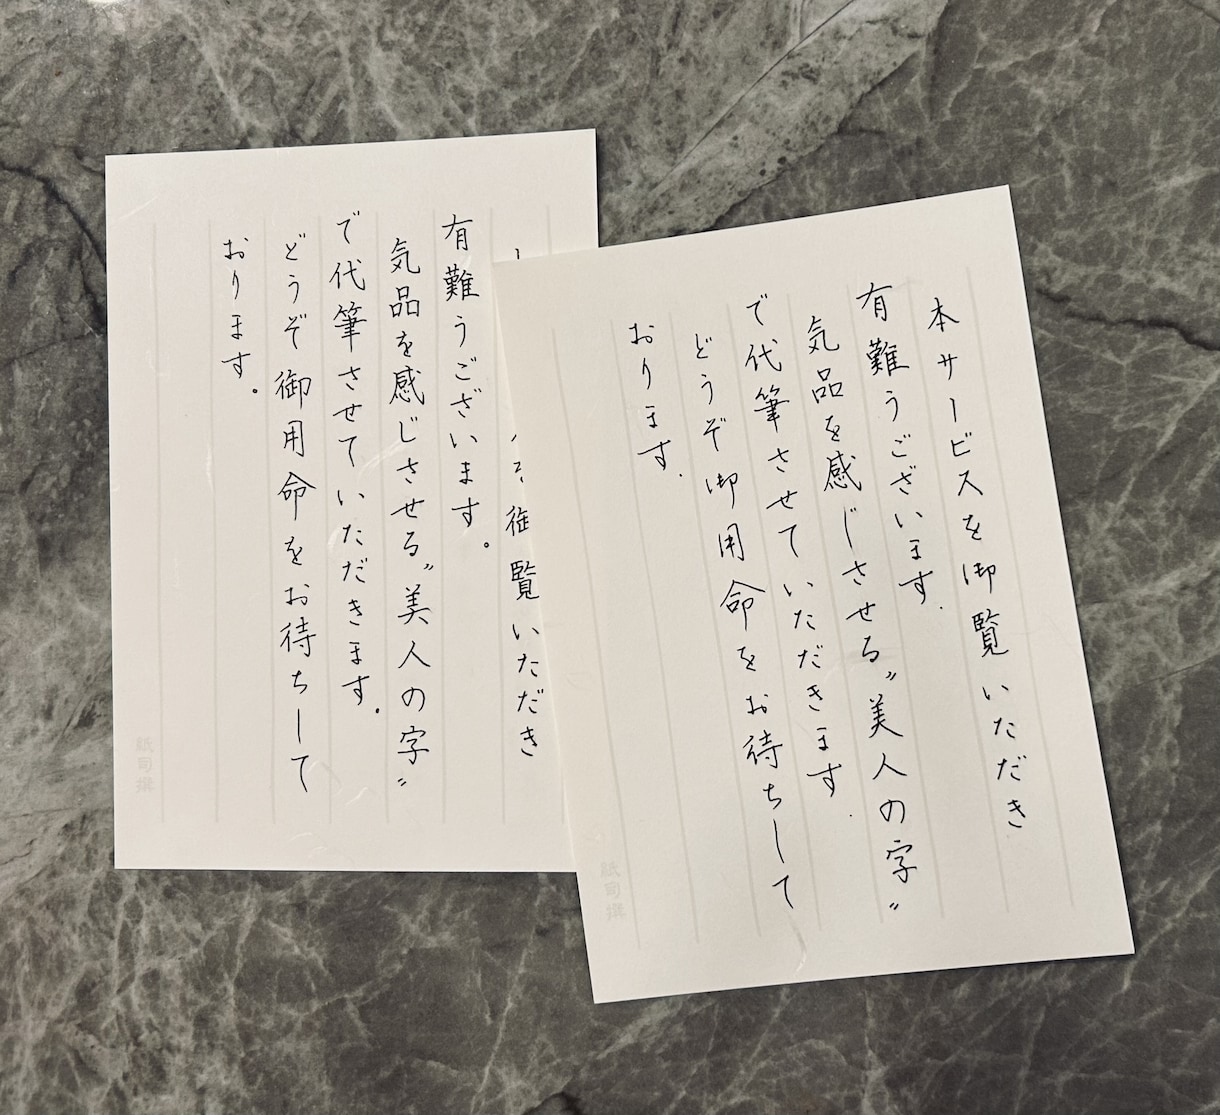 本サービスを御覧いただき
有難うございます.
気品を感じさせる〝美人の字〟
で代筆させていただきます.
どうぞ御用命をお待ちして
おります.
紙司撰
御覧いただき
有難うございます。
気品を感じさせる〝美人の字〟
で代筆させていただきます。
どうぞ御用命をお待ちして
おります。
紙司撰